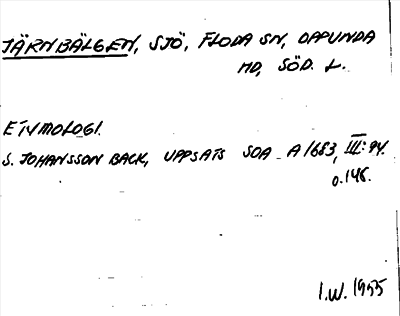 JÄRNBÄLGEN, SJÖ, FLODA SN, OPPUNDA
HD, SÖD. L.
ETYMOLOGI.
S. JOHANSSON BACK, UPPSATS SOA A 1683, III: 94.
o. 148.
I.W. 1955